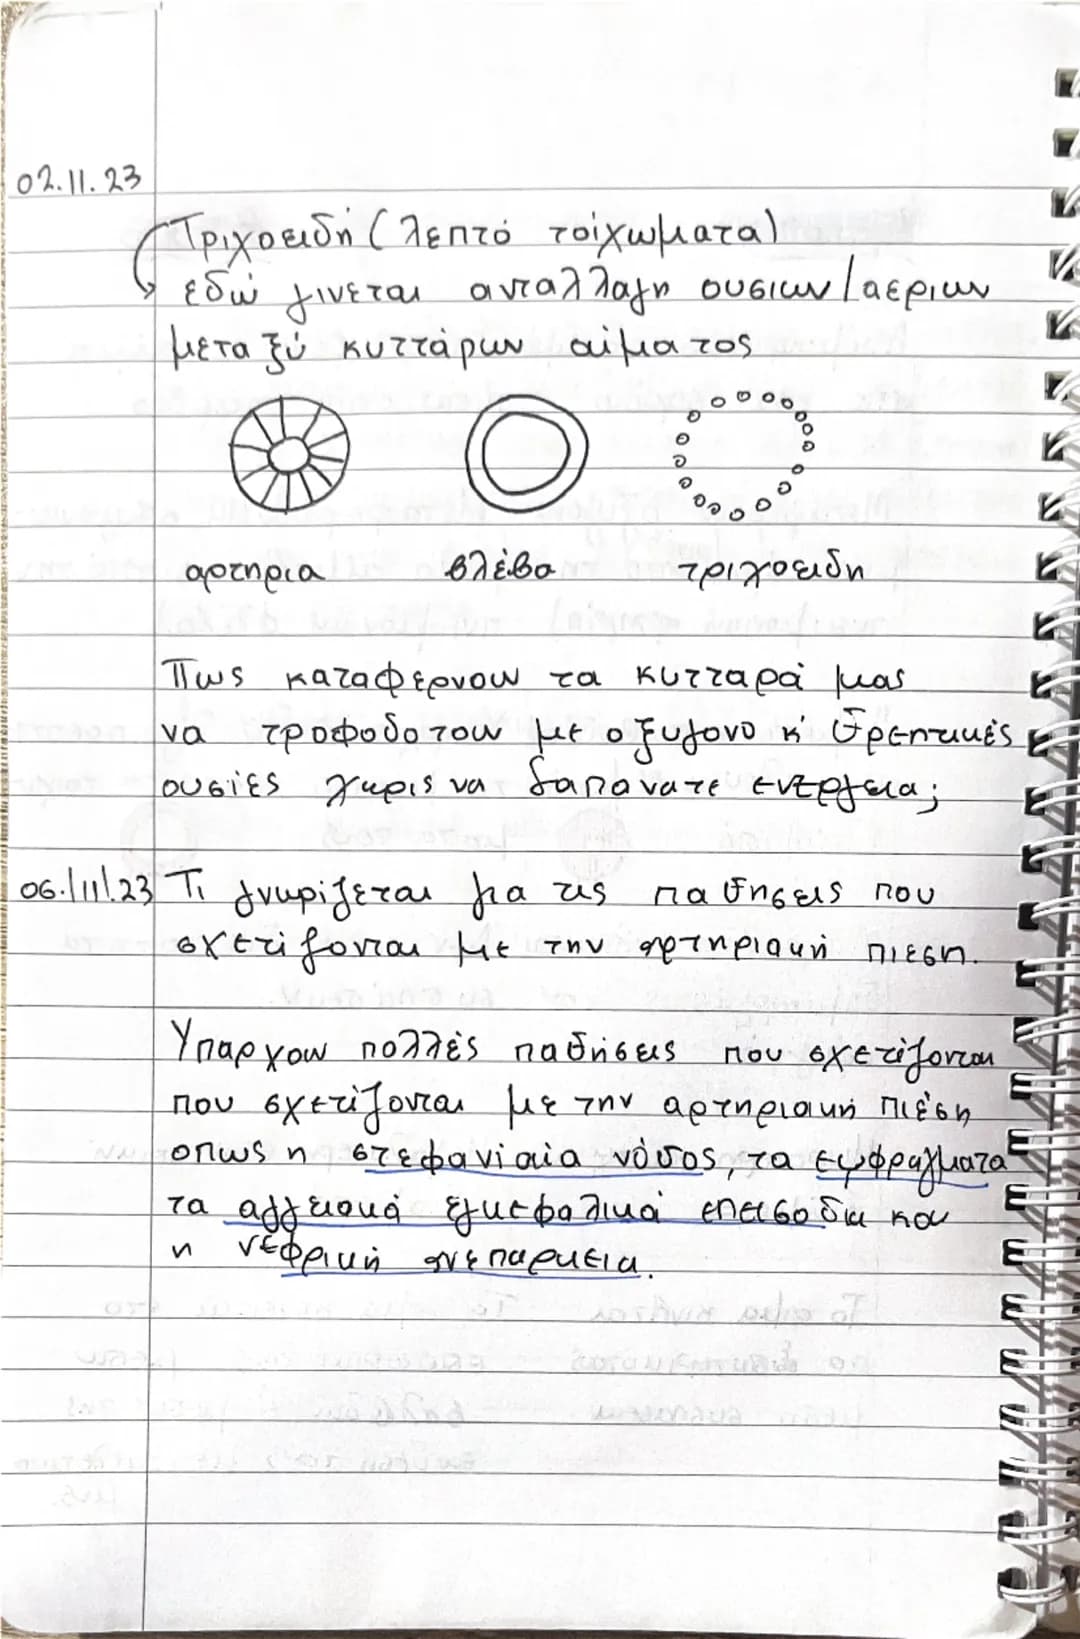 02.11.23
Τριχοειδή ( λεπτό τοίχωματα)
εδώ γινεται ανταλλαγη ουσιων / αεριων
μεταξύ κυττάρων αίματος
αρτηρια βλέβα τριχοειδη
Πως καταφερνουν τα κυτταρά μας
να τροφοδοτουν με οξυγονο κ' θρεπτικές
ουσίες χωρις να δαπανατε ενεργεια;
06.11.23 Τι γνωρίζεται για τις παθησεις που
σχετίζονται με την αρτηριακή πιεση.
Υπαρχουν πολλές παθήσεις που σχετίζονται
που σχετίζονται με την αρτηριακή πιέση
οπως η στεφανιαία νόσος, τα εμφράγματα
τα αγγειακά εγκεφαλικά επεισόδια και
η νεφρική ανεπαρκεια.